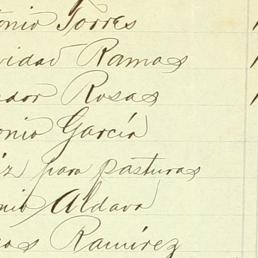 onio Torres
vidad Ramos
ador Rosas
onio García
iz para pasturas
nio Aldava
as Ramírez